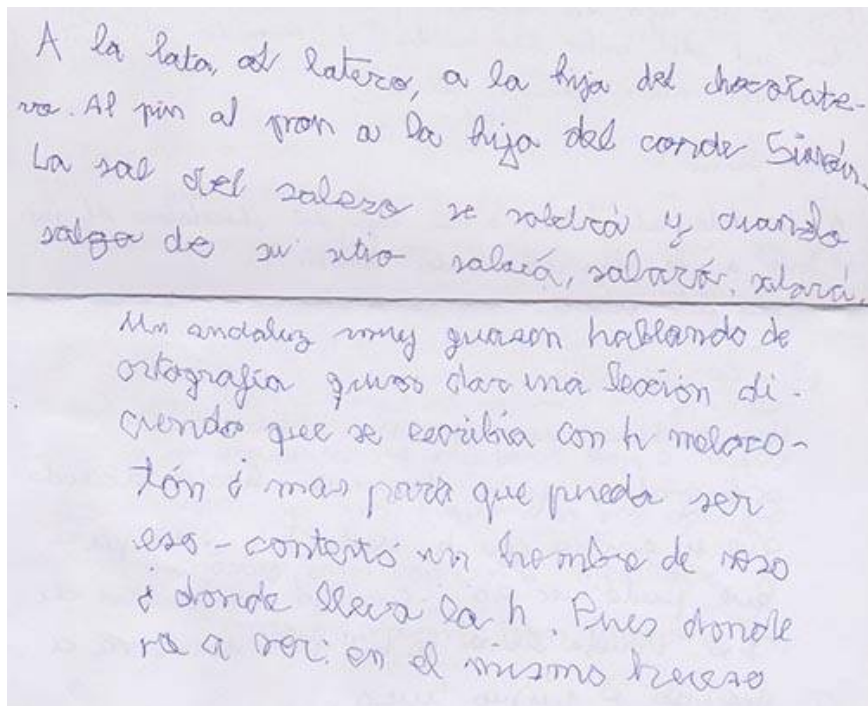 A la lata, al latero, a la hija del chocolate-
ro. Al pin al pon a la hija del conde Simón.
La sal del salero se saldrá y cuando
salga de su sitio salará, salará, salará.
Un andaluz muy guason hablando de
ortografía quiso dar una lección di-
ciendo que se escribia con h meloco-
tón ¿ mas para que pueda ser
eso - contesto un hombre de seso
¿ donde lleva la h. Pues donde
va a ser: en el mismo hueso